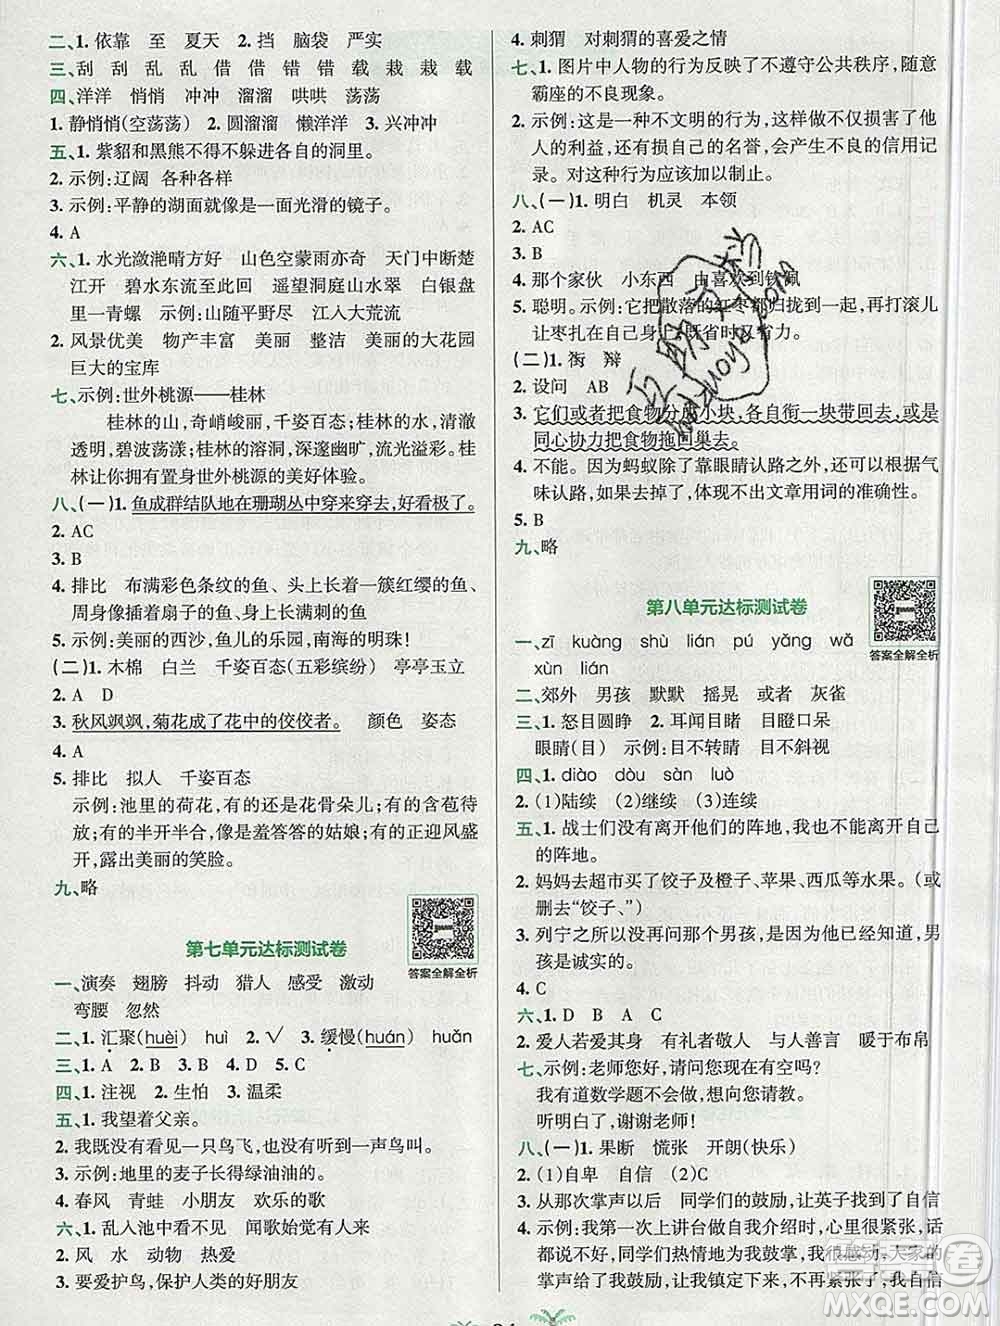 二、1. 依靠 至 夏天 2. 挡 脑袋 严实
三、刮 刮 乱 乱 借 借 错 错 载 栽 栽 载
四、洋洋 悄悄 冲冲 溜溜 哄哄 荡荡
1. 静悄悄(空荡荡) 2. 圆溜溜 懒洋洋 3. 兴冲冲
五、1. 紫貂和黑熊不得不躲进各自的洞里。
2. 示例:辽阔 各种各样
3. 示例:平静的湖面就像是一面光滑的镜子。
4. A
六、1. 水光潋滟晴方好 山色空蒙雨亦奇 天门中断楚
江开 碧水东流至此回 遥望洞庭山水翠 白银盘
里一青螺 示例:山随平野尽 江入大荒流
2. 风景优美 物产丰富 美丽 整洁 美丽的大花园
巨大的宝库
七、示例:世外桃源——桂林
桂林的山,奇峭峻丽,千姿百态;桂林的水,清澈
透明,碧波荡漾;桂林的溶洞,深邃幽旷,流光溢彩。桂
林让你拥有置身世外桃源的美好体验。
八、(一)1. 鱼成群结队地在珊瑚丛中穿来穿去,好看极了。
2. AC
3. B
4. 排比 布满彩色条纹的鱼、头上长着一簇红缨的鱼、
周身像插着扇子的鱼、身上长满刺的鱼
5. 示例:美丽的西沙,鱼儿的乐园,南海的明珠!
(二)1. 木棉 白兰 千姿百态(五彩缤纷) 亭亭玉立
2. A D
3. 秋风飒飒,菊花成了花中的佼佼者。 颜色 姿态
4. A
5. 排比 拟人 千姿百态
示例:池里的荷花,有的还是花骨朵儿,含苞待
放;有的半开半合,像是羞答答的姑娘;有的正迎风盛
开,露出美丽的笑脸。
九、略
第七单元达标测试卷
答案全解全析
一、演奏 翅膀 抖动 猎人 感受 激动
弯腰 忽然
二、1. 汇聚(huèi) huì 2. √ 3. 缓慢(huán) huǎn
三、1. A 2. B 3. B 4. B 5. C
四、1. 注视 2. 生怕 3. 温柔
五、1. 我望着父亲。
2. 我既没有看见一只鸟飞,也没有听到一声鸟叫。
3. 示例:地里的麦子长得绿油油的。
4. 春风 青蛙 小朋友 欢乐的歌
六、1. 乱入池中看不见 闻歌始觉有人来
2. 风 水 动物 热爱
3. 要爱护鸟,保护人类的好朋友
4. 刺猬 对刺猬的喜爱之情
七、1. 图片中人物的行为反映了不遵守公共秩序,随意
霸座的不良现象。
2. 示例:这是一种不文明的行为,这样做不仅损害了他
人的利益,还有损自己的名誉,会产生不良的信用记
录。对这种行为应该加以制止。
八、(一)1. 明白 机灵 本领
2. AC
3. B
4. 那个家伙 小东西 由喜欢到钦佩
5. 聪明。示例:它把散落的红枣都归拢到一起,再打滚儿
让枣扎在自己身上,既省时又省力。
(二)1. 衔 辩
2. 设问 AB
3. 它们或者把食物分成小块,各自衔一块带回去,或是
同心协力把食物拖回巢去。
4. 不能。因为蚂蚁除了靠眼睛认路之外,还可以根据气
味认路,如果去掉了,体现不出文章用词的准确性。
5. B
九、略
第八单元达标测试卷
答案全解全析
一、zī kuàng shù lián pú yǎng wǎ
xùn lián
二、郊外 男孩 默默 摇晃 或者 灰雀
三、1. 怒目圆睁 2. 耳闻目睹 目瞪口呆
眼睛(目) 示例:目不转睛 目不斜视
四、1. diào dòu sàn luò
2. (1)陆续 (2)继续 (3)连续
五、1. 战士们没有离开他们的阵地,我也不能离开自己
的阵地。
2. 妈妈去超市买了饺子及橙子、苹果、西瓜等水果。(或
删去“饺子、”)
3. 列宁之所以没有问那个男孩,是因为他坚信那个男
孩是诚实的。
4. C
六、1. D B A C
2. 爱人若爱其身 有礼者敬人 与人善言 暖于布帛
七、示例:老师您好,请问您现在有空吗?
我有道数学题不会做,想向您请教。
听明白了,谢谢老师!
八、(一)1. 果断 慌张 开朗(快乐)
2. (1)自卑 自信 (2)C
3. 从那次掌声以后 同学们的鼓励,让英子找到了自信
4. 示例:我第一次上讲台做自我介绍时,心里很紧张,话
都说不出来,同学们热情地为我鼓掌,我很感动,大家的
掌声给了我鼓励,让我镇定下来,不再紧张,有了自信
答案圈
MXQE.COM